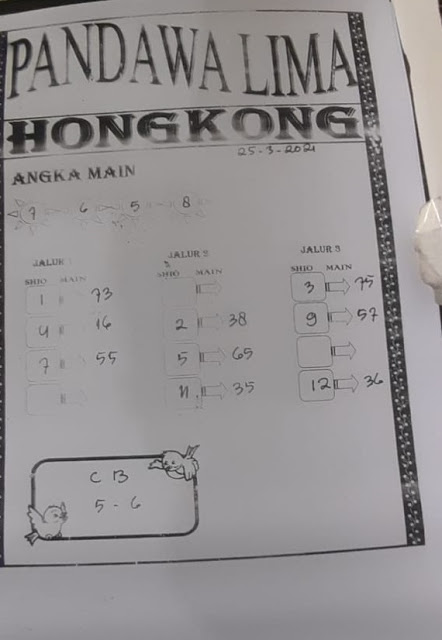 PANDAWA LIMA
HONGKONG
25-3-2021
ANGKA MAIN
7 6 5 8
JALUR 1
SHIO MAIN
1 73
4 16
7 55
JALUR 2
SHIO MAIN
2 38
5 65
11 35
JALUR 3
SHIO MAIN
3 75
9 57
12 36
CB
5-6